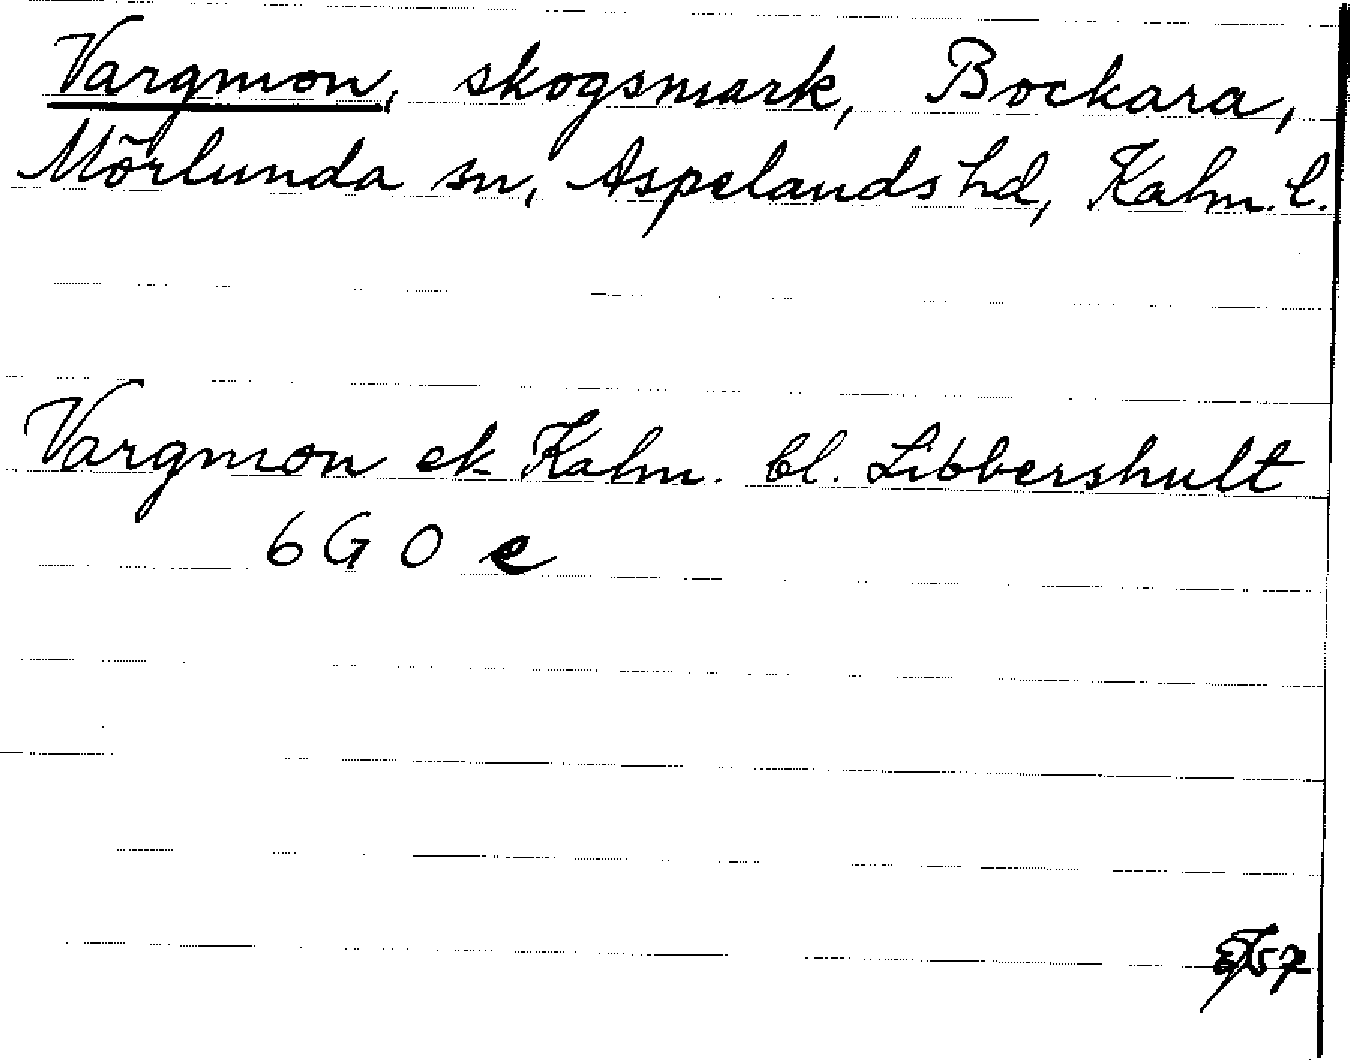 Vargmon, skogsmark, Bockara,
Mörlunda sn, Aspelands hd, Kalm. l.
Vargmon ek Kalm. bl. Libbershult
6 G 0 e
57